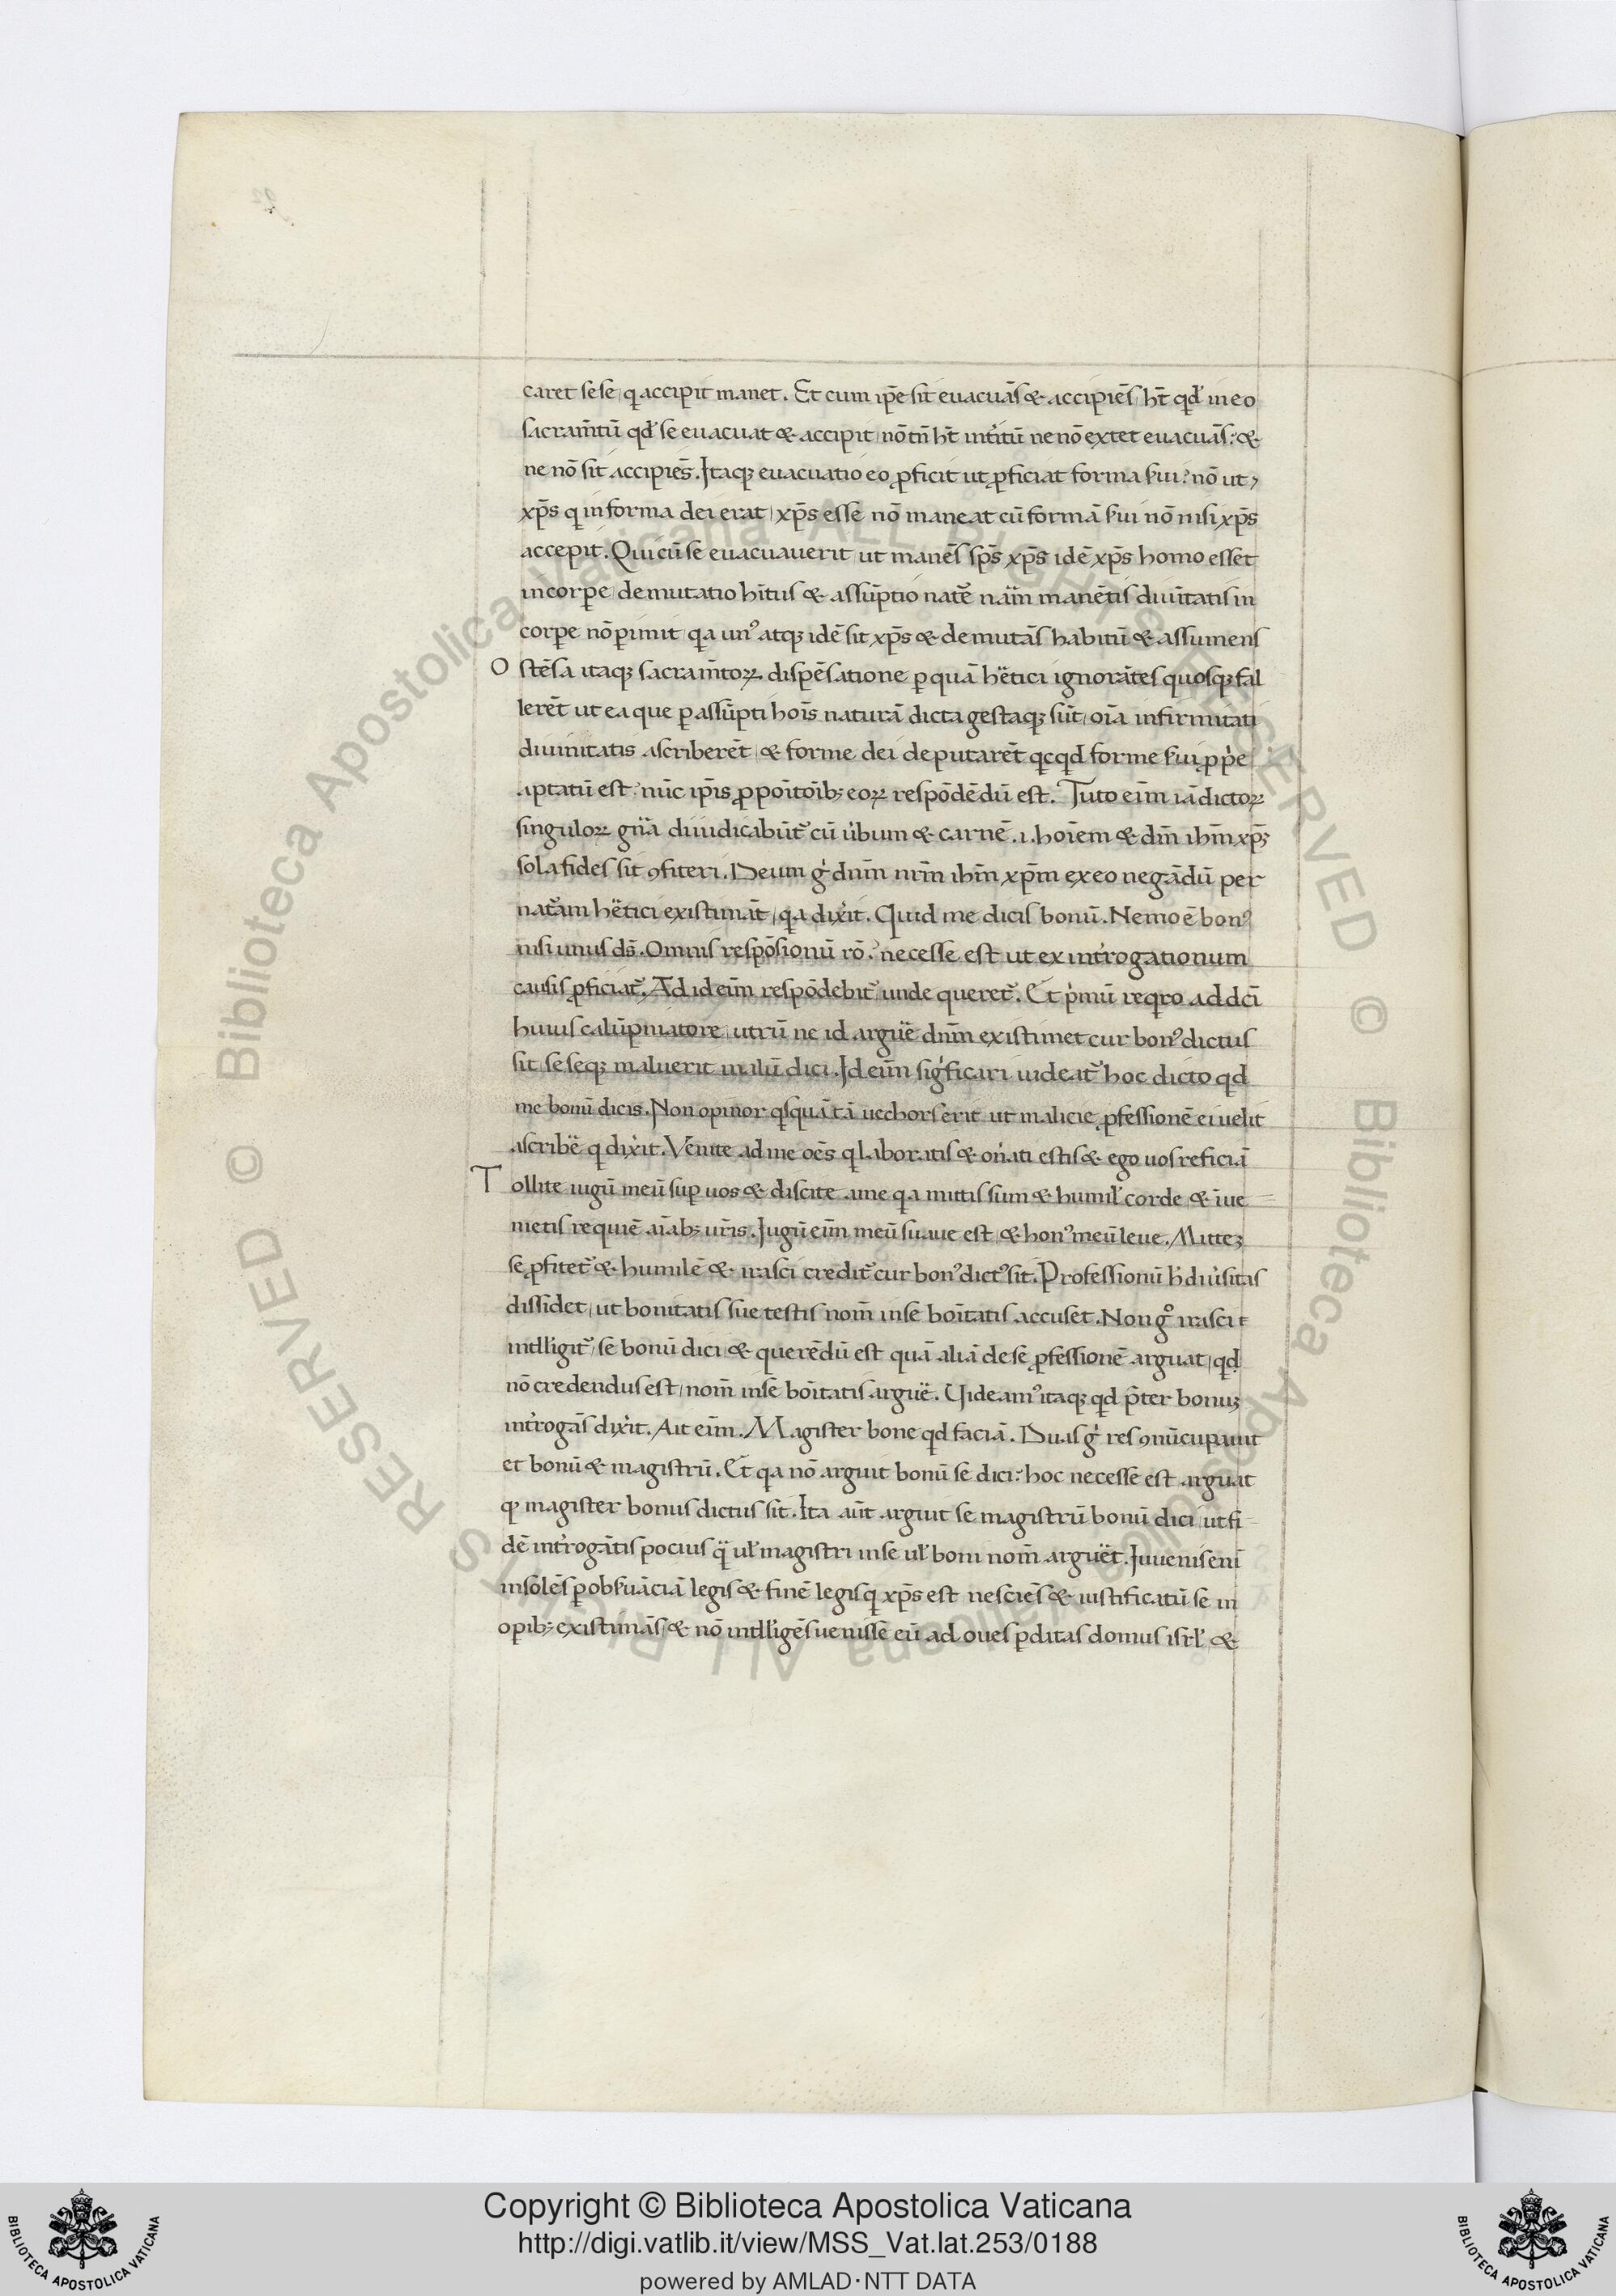 caret sese, q accipit manet. Et cum ip̄e sit euacuās & accipiēs, ht̄ qd' in eo
sacram̄tū qd' se euacuat & accipit, nō tn̄ ht̄ int̓itū ne nō extet euacuās: &
ne nō sit accipiēs. Itaqꝫ euacuatio eo ꝓficit ut ꝓficiat forma sui: nō ut,
xp̄s q in forma dei erat, xp̄s esse nō maneat cū formā sui nō nisi xp̄s
accepit. Qui cū se euacuauerit ut manēs sp̄s xp̄s idē xp̄s homo esset
in corꝑe, demutatio hītus & assūptio natē nām manētis diuītatis in
corꝑe nō ꝑimit, qa un᾿ atqꝫ idē sit xp̄s & demutās habitū & assumens
O stēsa itaqꝫ sacram̄toꝝ dispēsatione ꝑ quā hētici ignorātes quosqꝫ fal
lerēt ut ea que ꝑ assūpti hoīs naturā dicta gestaqꝫ sūt, oīa infirmitati
diuinitatis ascriberēt, & forme dei deputarēt qcqd forme sui ꝓpe
aptatū est: nūc ip̄is ꝓpoītoībꝫ eoꝝ respōdēdū est. Tuto eīm iā dictoꝝ
singuloꝝ gn̄a diiudicabūt᾿ cū ūbum & carnē .i. hoīem & dn̄m ihm̄ xp̄ꝫ
sola fides sit ꝯfiteri. Deum g̓ dnm̄ nrm̄ ihm̄ xp̄m ex eo negādū per
nat᾿am hētici existimāt, qa dix̓it. Quid me dicis bonū. Nemo ē bon᾿
nisi unus ds̄. Omnis respōsionū rō: necesse est ut ex int̓rogationum
causis ꝓficiat᾿. Ad id eīm respōdebit᾿ unde queret᾿. Et p̓mū reqro ad dc̄i
huius calūpniatore, utrū ne id arguē dnm̄ existimet cur bon᾿ dictus
sit, seseqꝫ maluerit malū dici. Id eīm sig̓ficari uideat᾿ hoc dicto qd
me bonū dicis. Non opinor qsquā tā uechors erit ut malicie ꝓfessionē ei uelit
ascribē q dix̓it. Venite ad me oēs q laboratis & on̓ati estis & ego uos reficiā
T ollite iugū meū suꝑ uos & discite a me qa mitis sum & humil' corde & īue
nietis requiē aīabꝫ ur̄is. Iugū eīm meū suaue est, & hon᾿ meū leue. Mitteꝫ
se ꝓfitet᾿ & humilē & irasci credit᾿ cur bon᾿ dict᾿ sit. Professionū h̓ diu̓sitas
dissidet, ut bonitatis sue testis nom̄ in se boītatis accuset. Non g° irasci t
intelligit᾿, se bonū dici, & querēdū est quā aliā de se ꝓfessionē arguat, qd
nō credendus est, nom̄ in se boītatis arguē. Uideam᾿ itaqꝫ qd p̄ter bonuꝫ
int̓rogās dix̓it. Ait eīm. Magister bone qd faciā. Duas g̓ res ꝯnūcupauit
et bonū & magistrū. Et qa nō arguit bonū se dici: hoc necesse est arguat
qꝫ magister bonus dictus sit. Ita aūt arguit se magistrū bonū dici, ut fi
dē int̓rogātis pocius q̄ ul' magistri in se ul' boni nom̄ arguēt. Iuuenis enī
insolēs ꝑ obsuāciā legis & finē legis q xp̄s est nesciēs & iustificatū se in
oꝑibꝫ existimās, & nō intell'igēs uenisse eū ad oues ꝑditas domus isrl', &
Copyright © Biblioteca Apostolica Vaticana
http://digi.vatlib.it/view/MSS_Vat.lat.253/0188
powered by AMLAD·NTT DATA
BIBLIOTECA APOSTOLICA VATICANA
BIBLIOTECA APOSTOLICA VATICANA
© Biblioteca Apostolica Vaticana ALL RIGHTS RESERVED © Biblioteca Apostolica Vaticana ALL RIGHTS RESERVED